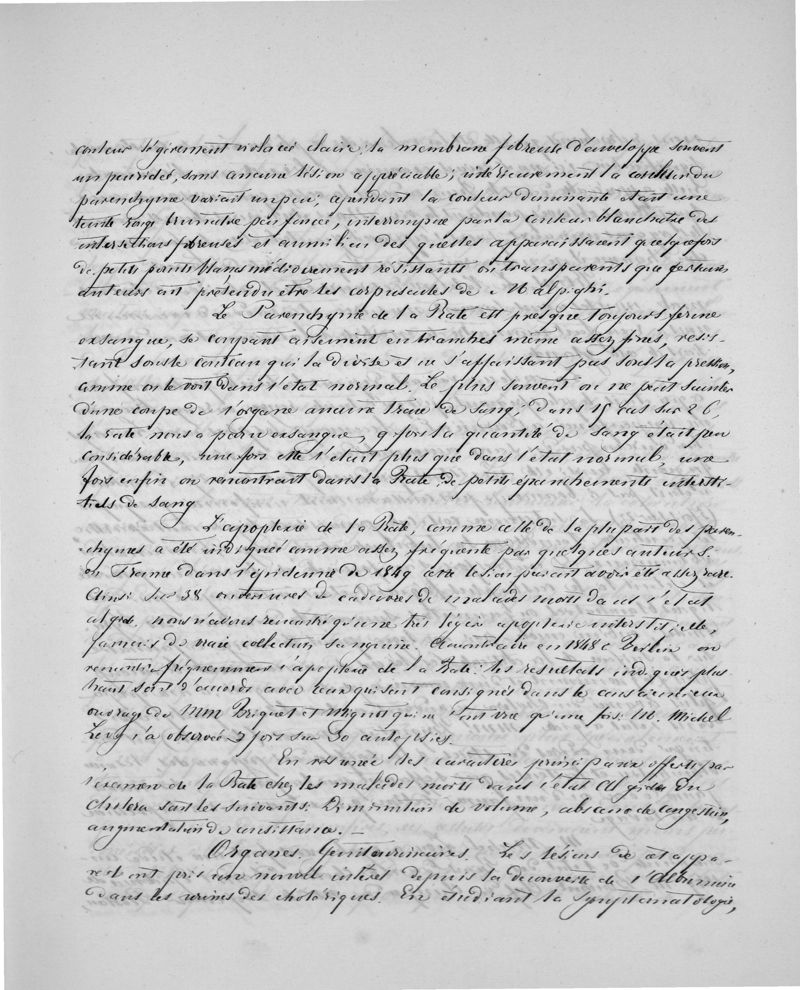 couleur légèrement violacée claire; la membrane fibreuse d'enveloppe souvent
un peu ridée, sans aucune lésion appréciable; intérieurement la couleur du
parenchyme variait un peu; cependant la couleur dominante était une
teinte rouge brunâtre peu foncée, interrompue par la couleur blanchâtre des
intersections fibreuses et au milieu des quelles apparaissaient quelquefois
de petits points blancs médiocrement résistants ou transparents que certains
auteurs ont prétendu être les corpuscules de Malpighi.
Le Parenchyme de la Rate est presque toujours ferme
exsangue, se coupant aisément en tranches même assez fines, résis-
tant sous le couteau qui la divise et ne s'affaissant pas sous la pression,
comme on le voit dans l'état normal. Le plus souvent on ne peut faire sortir
d'une coupe de l'organe aucune trace de sang; dans 15 cas sur 26,
la rate nous a paru exsangue, 9 fois la quantité de sang était peu
considérable, une fois elle l'était plus que dans l'état normal, une
fois enfin on rencontrait dans la Rate de petits épanchements intersti-
tiels de sang
L'apoplexie de la Rate, comme celle de la plupart des paren-
chymes a été indiquée comme assez fréquente par quelques auteurs.
en France dans l'épidémie de 1849 cette lésion parait avoir été assez rare.
Ainsi sur 38 ouvertures de cadavres de malades morts dans l'état
algide, nous n'avons rencontré qu'une très légère apoplexie interstitielle,
jamais de vraie collection sanguine. Au contraire en 1848 à Berlin on
rencontra fréquemment l'apoplexie de la Rate: les résultats indiqués plus
haut sont d'accord avec ceux qui sont consignés dans le consciencieux
ouvrage de MM Briquet et Mignot qui ne l'ont vue qu'une fois. M. Michel
Levy l'a observée 3 fois sur 30 autopsies.
En résumé les caractères principaux offerts par
l'examen de la Rate chez les malades morts dans l'état Algide du
Choléra sont les suivants: Diminution de volume, absence de congestion,
augmentation de consistance. —
Organes Génitourinaires. Les lésions de cet appa-
reil ont pris un nouvel intérêt depuis la découverte de l'Albumine
dans les urines des cholériques. En étudiant la Symptomatologie,